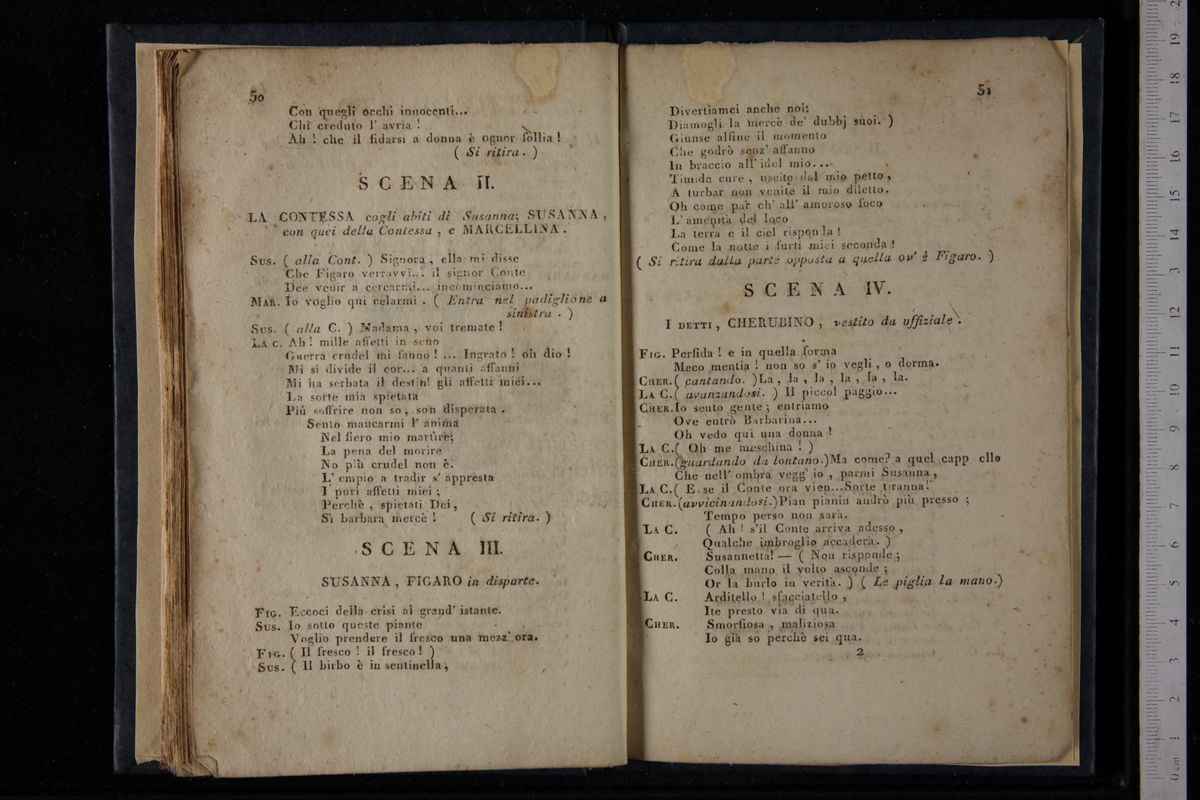 50
Con quegli occhi innocenti...
Chi creduto l' avria !
Ah ! che il fidarsi a donna è ognor follia !
( Si ritira. )
SCENA II.
LA CONTESSA cogli abiti di Susanna; SUSANNA,
con quei della Contessa, e MARCELLINA.
Sus. ( alla Cont. ) Signora, ella mi disse
Che Figaro verravvi... il signor Conte
Dee venir a cercarmi... incominciamo...
Mar. Io voglio qui celarmi. ( Entra nel padiglione a
sinistra. )
Sus. ( alla C. ) Madama, voi tremate !
La C. Ah ! mille affetti in seno
Guerra crudel mi fanno ! ... Ingrato ! oh dio !
Mi si divide il cor... a quanti affanni
Mi ha serbata il destin! gli affetti miei...
La sorte mia spietata
Più soffrire non so, son disperata.
Sento mancarmi l' anima
Nel fiero mio martire;
La pena del morire
No più crudel non è.
L' empio a tradir s' appresta
I puri affetti miei ;
Perchè, spietati Dei,
Sì barbara mercè ! ( Si ritira. )
SCENA III.
SUSANNA, FIGARO in disparte.
Fig. Eccoci della crisi al grand' istante.
Sus. Io sotto queste piante
Voglio prendere il fresco una mezz' ora.
Fig. ( Il fresco ! il fresco ! )
Sus. ( Il birbo è in sentinella,
51
Divertiamci anche noi:
Diamogli la mercè de' dubbj suoi. )
Giunse alfine il momento
Che godrò senz' affanno
In braccio all' idol mio...
Timide cure, uscite dal mio petto,
A turbar non venite il mio diletto.
Oh come par ch' all' amoroso foco
L' amenità del loco
La terra e il ciel risponda !
Come la notte i furti miei seconda !
( Si ritira dalla parte opposta a quella ov' è Figaro. )
SCENA IV.
I DETTI, CHERUBINO, vestito da uffiziale.
Fig. Perfida ! e in quella forma
Meco mentia ! non so s' io vegli, o dorma.
Cher. ( cantando. ) La, la, la, la, la, la.
La C. ( avanzandosi. ) Il piccol paggio...
Cher. Io sento gente ; entriamo
Ove entrò Barbarina...
Oh vedo qui una donna !
La C. ( Oh me meschina ! )
Cher. (guardando da lontano.) Ma come? a quel capp ello
Che nell' ombra vegg' io, parmi Susanna,
La C. ( E se il Conte ora vien... Sorte tiranna!
Cher. (avvicinandosi.) Pian pianin andrò più presso ;
Tempo perso non sarà.
La C. ( Ah ! s'il Conte arriva adesso,
Qualche imbroglio accaderà. )
Cher. Susannetta! — ( Non risponde ;
Colla mano il volto asconde ;
Or la burlo in verità. ) ( Le piglia la mano.)
La C. Arditello ! sfacciatello,
Ite presto via di qua.
Cher. Smorfiosa, maliziosa
Io già so perchè sei qua.
2
0 cm 1 2 3 4 5 6 7 8 9 10 11 12 13 14 15 16 17 18 19